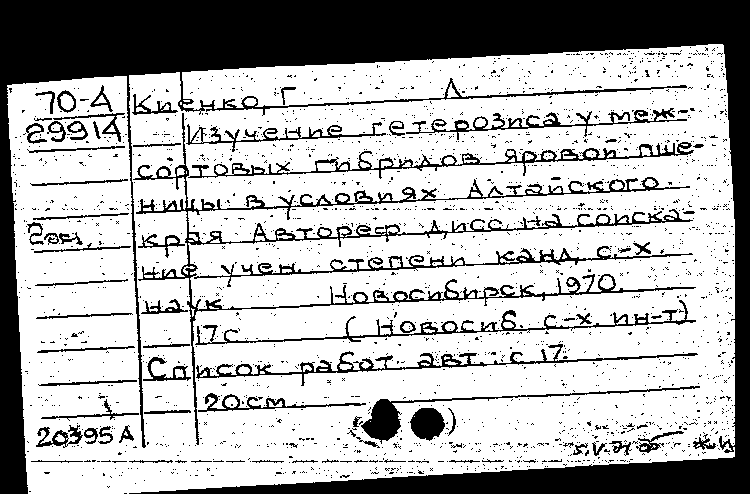 70-4 Киенко, Г Л
29914 Изучение гетерозиса у меж-
сортовых гибридов яровой пше-
ницы в условиях Алтайского
2экз. края Автореф. дисс. на соиска-
ние учен. степени канд. с.-х.
наук. Новосибирск, 1970.
17с (Новосиб. с-х. ин-т)
Список работ авт.: с 17.
20см
20395А